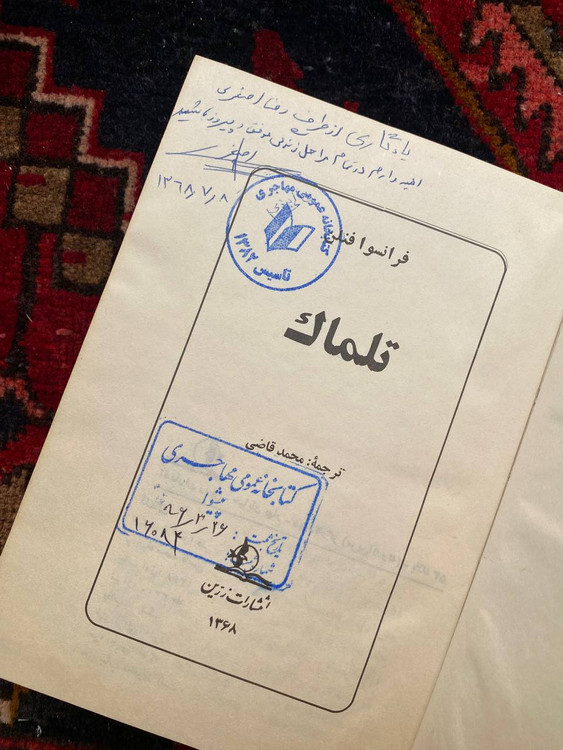 یادگاری از طرف رضا اصغری
امیدوارم در تمام مراحل زندگی موفق و پیروز باشید
۱۳۶۸/۷/۸
کتابخانه عمومی مهاجری
تاسیس ۱۳۸۲
فرانسوا فنلن
تلماك
ترجمهٔ: محمد قاضی
کتابخانه عمومی مهاجری
پیشوا
تاریخ ثبت: ۸۶/۳/۲۶
شماره ۱۶۰۸۴
انتشارات زرین
۱۳۶۸